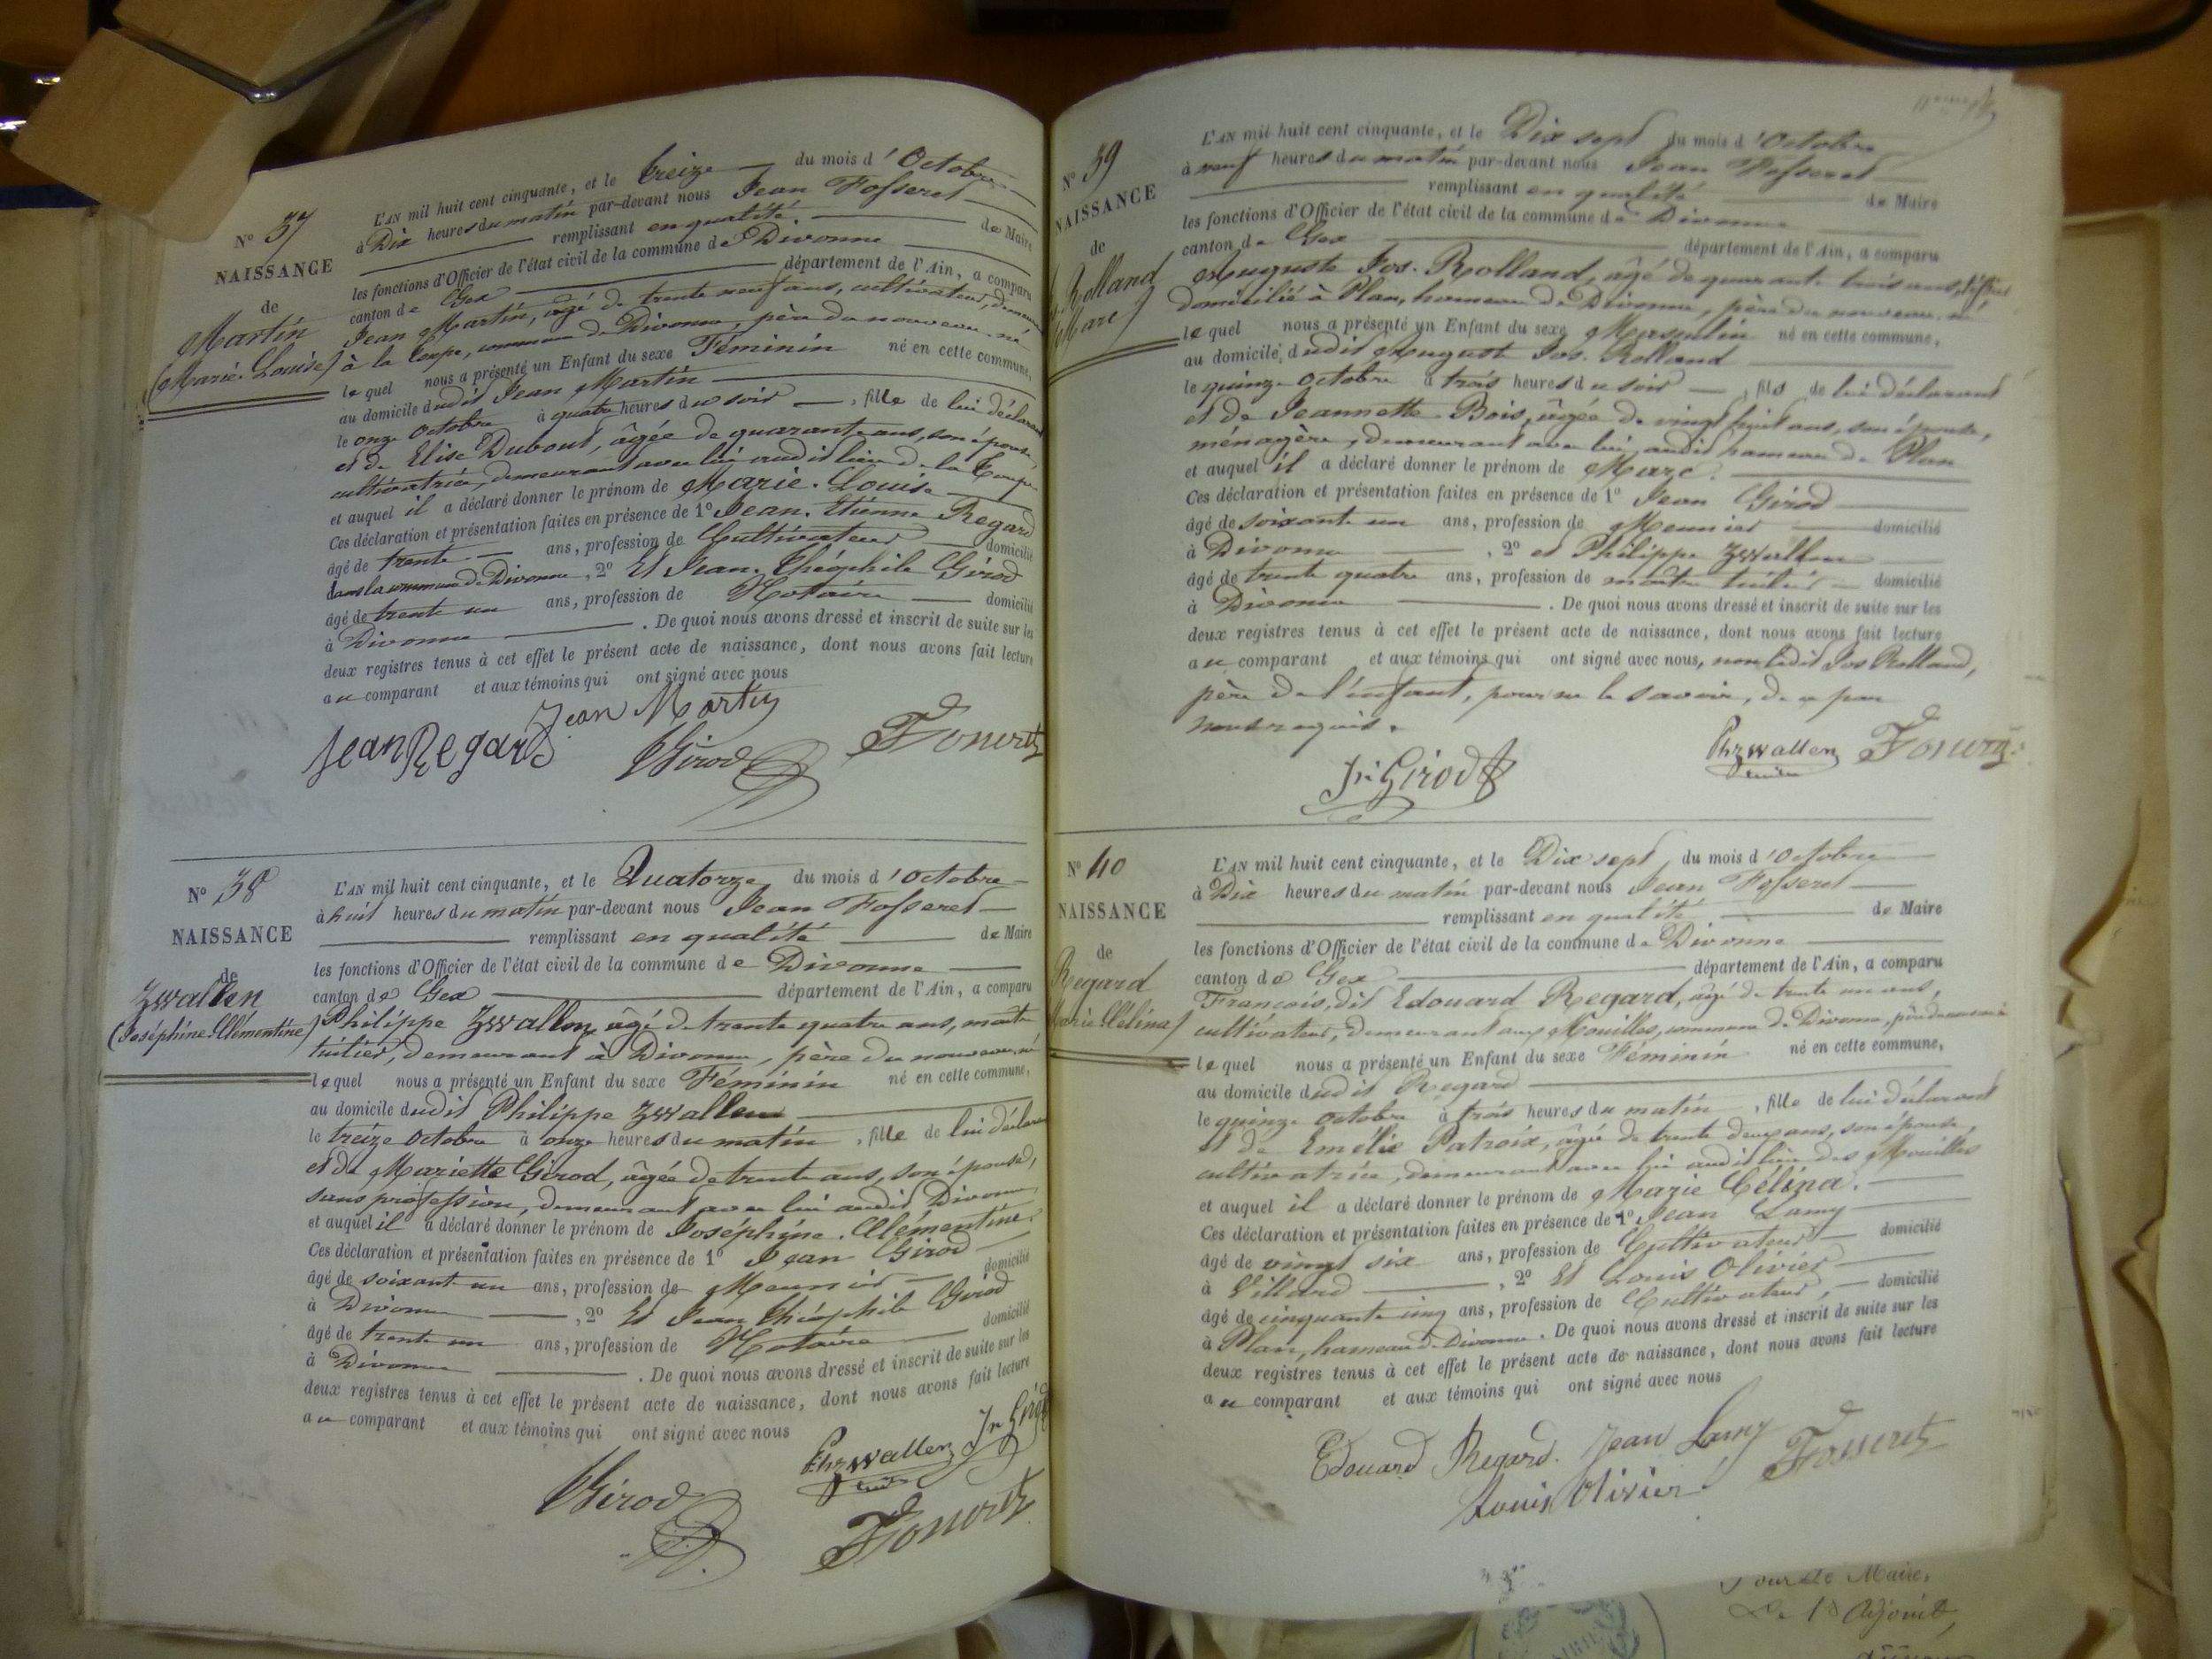 N° 37
NAISSANCE
de
Martin
(Marie-Louise)
L'AN mil huit cent cinquante, et le treize du mois d'Octobre
à Dix heures du matin par-devant nous Jean Fosseret
remplissant en qualité de Maire
les fonctions d'Officier de l'état civil de la commune de Divonne
canton de Gex département de l'Ain, a comparu
Jean Martin, âgé de trente neuf ans, cultivateur, demeurant
à la commune de Divonne, père du nouveau-né
lequel nous a présenté un Enfant du sexe Féminin né en cette commune,
au domicile dudit Jean Martin
le onze Octobre à quatre heures du soir, fille de lui déclarant
et de Elise Dubout, âgée de quarante ans, son épouse,
cultivatrice, demeurant avec lui audit lieu de la
et auquel il a déclaré donner le prénom de Marie-Louise
Ces déclaration et présentation faites en présence de 1° Jean-Etienne Regard
âgé de trente ans, profession de Cultivateur domicilié
dans la commune de Divonne, 2° Et Jean-Théophile Girod
âgé de trente un ans, profession de Notaire domicilié
à Divonne. De quoi nous avons dressé et inscrit de suite sur les
deux registres tenus à cet effet le présent acte de naissance, dont nous avons fait lecture
au comparant et aux témoins qui ont signé avec nous
Jean Martin
Jean Regard
Girod
Fosseret
N° 38
NAISSANCE
de
Zwallen
(Joséphine-Clémentine)
L'AN mil huit cent cinquante, et le Quatorze du mois d'Octobre
à huit heures du matin par-devant nous Jean Fosseret
remplissant en qualité de Maire
les fonctions d'Officier de l'état civil de la commune de Divonne
canton de Gex département de l'Ain, a comparu
Philippe Zwallen, âgé de trente quatre ans, maître
tuilier, demeurant à Divonne, père du nouveau-né
lequel nous a présenté un Enfant du sexe Féminin né en cette commune,
au domicile dudit Philippe Zwallen
le treize Octobre à onze heures du matin, fille de lui déclarant
et de Mariette Girod, âgée de trente ans, son épouse,
sans profession, demeurant avec lui audit Divonne,
et auquel il a déclaré donner le prénom de Joséphine-Clémentine.
Ces déclaration et présentation faites en présence de 1° Jean Girod
âgé de soixante un ans, profession de Meunier domicilié
à Divonne, 2° Et Jean Théophile Girod
âgé de trente un ans, profession de Notaire domicilié
à Divonne. De quoi nous avons dressé et inscrit de suite sur les
deux registres tenus à cet effet le présent acte de naissance, dont nous avons fait lecture
au comparant et aux témoins qui ont signé avec nous
Phzwallen Jn Girod
Girod
Fosseret
N° 39
NAISSANCE
de
Rolland
Marc)
L'AN mil huit cent cinquante, et le Dix sept du mois d'Octobre
à neuf heures du matin par-devant nous Jean Fosseret
remplissant en qualité de Maire
les fonctions d'Officier de l'état civil de la commune de Divonne
canton de Gex département de l'Ain, a comparu
Auguste Jos. Rolland, âgé de quarante trois ans,
domicilié à Plan, hameau de Divonne, père du nouveau-né,
lequel nous a présenté un Enfant du sexe Masculin né en cette commune,
au domicile dudit Auguste Jos. Rolland
le quinze Octobre à trois heures du soir, fils de lui déclarant
et de Jeannette Bois, âgée de vingt huit ans, son épouse,
ménagère, demeurant avec lui audit hameau de Plan
et auquel il a déclaré donner le prénom de Marc.
Ces déclaration et présentation faites en présence de 1° Jean Girod
âgé de soixante un ans, profession de Meunier domicilié
à Divonne, 2° et Philippe Zwallen
âgé de trente quatre ans, profession de maître tuilier domicilié
à Divonne. De quoi nous avons dressé et inscrit de suite sur les
deux registres tenus à cet effet le présent acte de naissance, dont nous avons fait lecture
au comparant et aux témoins qui ont signé avec nous, non ledit Jos Rolland,
père de l'enfant, pour ne le savoir, de ce par
nous requis.
Phzwallen Fosseret
Jn Girod
N° 40
NAISSANCE
de
Regard
Marie Célina)
L'AN mil huit cent cinquante, et le Dix sept du mois d'Octobre
à Dix heures du matin par-devant nous Jean Fosseret
remplissant en qualité de Maire
les fonctions d'Officier de l'état civil de la commune de Divonne
canton de Gex département de l'Ain, a comparu
François, dit Edouard Regard, âgé de trente un ans,
cultivateur, demeurant aux Mouilles, commune de Divonne, père du nouveau-né
lequel nous a présenté un Enfant du sexe Féminin né en cette commune,
au domicile dudit Regard
le quinze Octobre à trois heures du matin, fille de lui déclarant
et de Emélie Patroix, âgée de trente deux ans, son épouse,
cultivatrice, demeurant avec lui audit lieu des Mouilles
et auquel il a déclaré donner le prénom de Marie Célina.
Ces déclaration et présentation faites en présence de 1° Jean Lamy
âgé de vingt six ans, profession de Cultivateur domicilié
à Villard, 2° Et Louis Olivier
âgé de cinquante cinq ans, profession de Cultivateur, domicilié
à Plan, hameau de Divonne. De quoi nous avons dressé et inscrit de suite sur les
deux registres tenus à cet effet le présent acte de naissance, dont nous avons fait lecture
au comparant et aux témoins qui ont signé avec nous
Edouard Regard. Jean Lamy Fosseret
Louis Olivier
Pour le Maire,
Le 1er Adjoint,